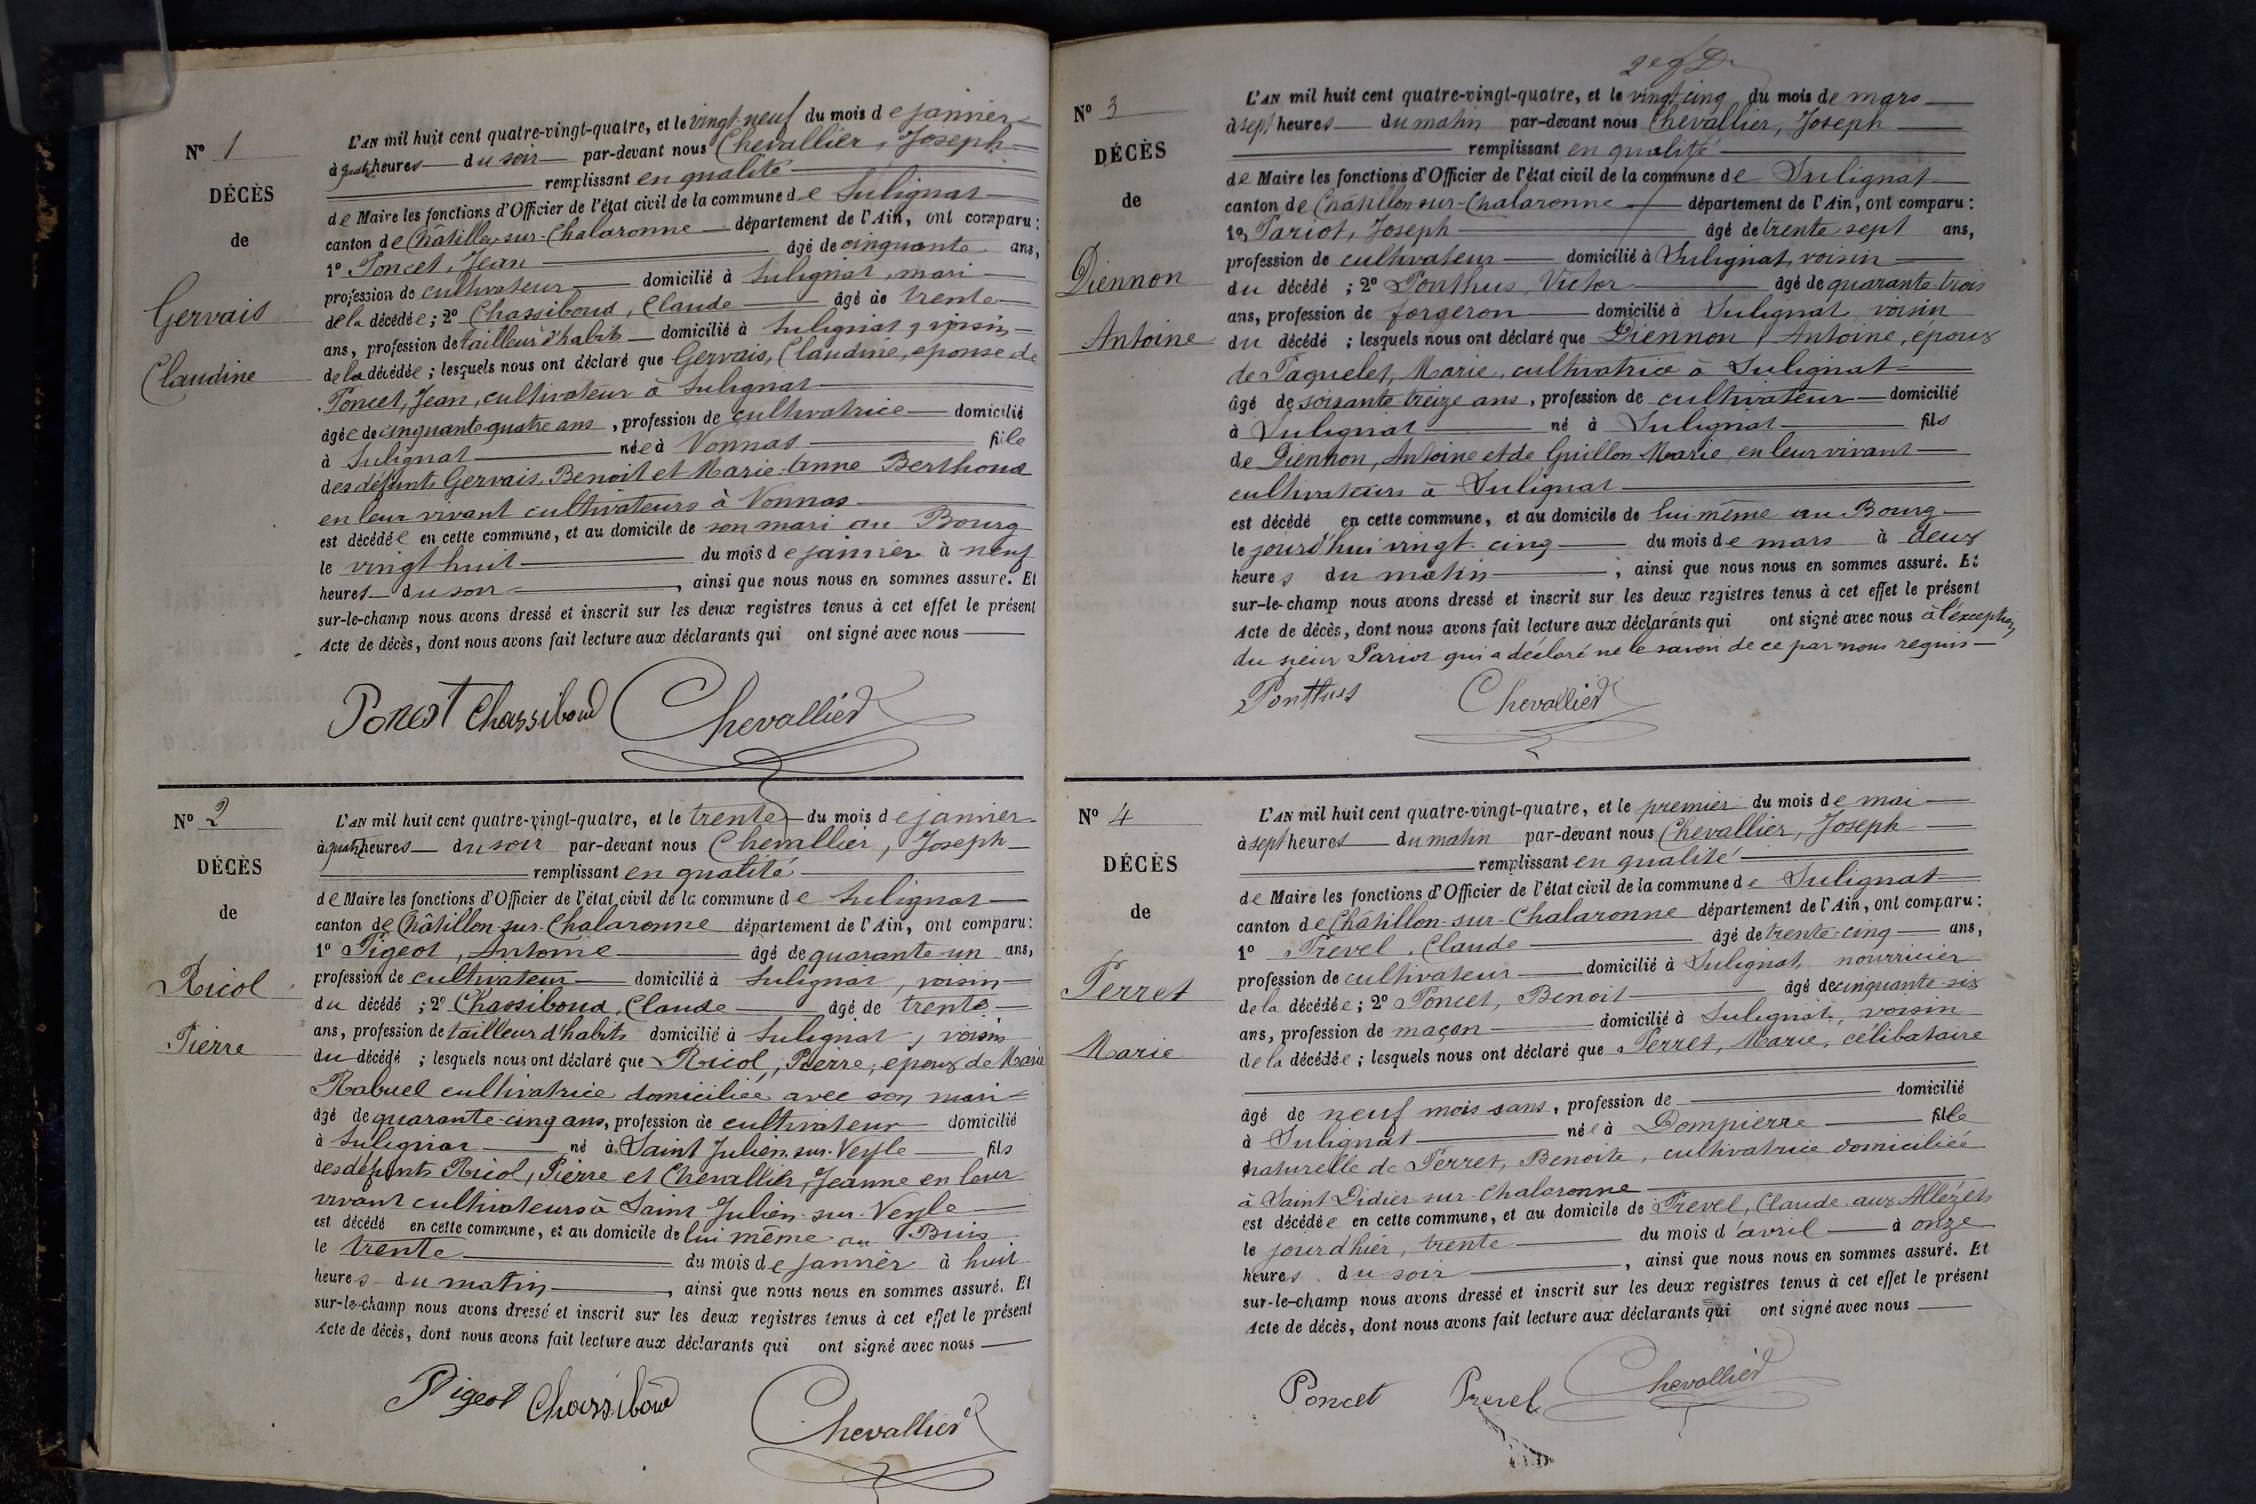 N° 1
DÉCÈS
de
Gervais
Claudine
L'AN mil huit cent quatre-vingt-quatre, et le vingt-neuf du mois de janvier
à quatre heures du soir par-devant nous Chevallier, Joseph
remplissant en qualité
de Maire les fonctions d'Officier de l'état civil de la commune de Sulignat
canton de Châtillon-sur-Chalaronne département de l'Ain, ont comparu :
1° Poncet, Jean âgé de cinquante ans,
profession de cultivateur domicilié à Sulignat, mari
de la décédée ; 2° Chassiboud, Claude âgé de trente
ans, profession de tailleur d'habits domicilié à Sulignat, voisin
de la décédée ; lesquels nous ont déclaré que Gervais, Claudine, épouse de
Poncet, Jean, cultivateur à Sulignat
âgée de cinquante quatre ans, profession de cultivatrice domicilié
à Sulignat née à Vonnas fille
des défunts Gervais, Benoit et Marie-Anne Berthoud
en leur vivant cultivateurs à Vonnas
est décédée en cette commune, et au domicile de son mari au Bourg
le vingt huit du mois de janvier à neuf
heures du soir, ainsi que nous nous en sommes assuré. Et
sur-le-champ nous avons dressé et inscrit sur les deux registres tenus à cet effet le présent
Acte de décès, dont nous avons fait lecture aux déclarants qui ont signé avec nous
Poncet Chassiboud Chevallier
N° 2
DÉCÈS
de
Ricol
Pierre
L'AN mil huit cent quatre-vingt-quatre, et le trente du mois de janvier
à quatre heures du soir par-devant nous Chevallier, Joseph
remplissant en qualité
de Maire les fonctions d'Officier de l'état civil de la commune de Sulignat
canton de Châtillon-sur-Chalaronne département de l'Ain, ont comparu :
1° Pigeot, Antoine âgé de quarante-un ans,
profession de cultivateur domicilié à Sulignat, voisin
du décédé ; 2° Chassiboud, Claude âgé de trente
ans, profession de tailleur d'habits domicilié à Sulignat, voisin
du décédé ; lesquels nous ont déclaré que Ricol, Pierre, époux de Marie
Rabuel cultivatrice domiciliée avec son mari
âgé de quarante-cinq ans, profession de cultivateur domicilié
à Sulignat né à Saint Julien-sur-Veyle fils
des défunts Ricol, Pierre et Chevallier, Jeanne en leur
vivant cultivateurs à Saint Julien-sur-Veyle
est décédé en cette commune, et au domicile de lui même au Buis
le trente du mois de janvier à huit
heures du matin, ainsi que nous nous en sommes assuré. Et
sur-le-champ nous avons dressé et inscrit sur les deux registres tenus à cet effet le présent
Acte de décès, dont nous avons fait lecture aux déclarants qui ont signé avec nous
Pigeot Chassiboud
Chevallier
N° 3
DÉCÈS
de
Diennon
Antoine
L'AN mil huit cent quatre-vingt-quatre, et le vingt cinq du mois de mars
à sept heures du matin par-devant nous Chevallier, Joseph
remplissant en qualité
de Maire les fonctions d'Officier de l'état civil de la commune de Sulignat
canton de Châtillon-sur-Chalaronne département de l'Ain, ont comparu :
1° Pariot, Joseph âgé de trente sept ans,
profession de cultivateur domicilié à Sulignat, voisin
du décédé ; 2° Ponthus, Victor âgé de quarante-trois
ans, profession de forgeron domicilié à Sulignat voisin
du décédé ; lesquels nous ont déclaré que Diennon, Antoine, époux
de Paquelet, Marie, cultivatrice à Sulignat
âgé de soixante treize ans, profession de cultivateur domicilié
à Sulignat né à Sulignat fils
de Diennon, Antoine et de Guillon Marie, en leur vivant
cultivateurs à Sulignat
est décédé en cette commune, et au domicile de lui-même au Bourg
le jourd'hui vingt-cinq du mois de mars à deux
heures du matin ; ainsi que nous nous en sommes assuré. Et
sur-le-champ nous avons dressé et inscrit sur les deux registres tenus à cet effet le présent
Acte de décès, dont nous avons fait lecture aux déclarants qui ont signé avec nous à l'exception
du sieur Pariot qui a déclaré ne le savoir de ce par nous requis
Ponthus Chevallier
N° 4
DÉCÈS
de
Perret
Marie
L'AN mil huit cent quatre-vingt-quatre, et le premier du mois de mai
à sept heures du matin par-devant nous Chevallier, Joseph
remplissant en qualité
de Maire les fonctions d'Officier de l'état civil de la commune de Sulignat
canton de Châtillon-sur-Chalaronne département de l'Ain, ont comparu :
1° Prevel, Claude âgé de trente-cinq ans,
profession de cultivateur domicilié à Sulignat, nourricier
de la décédée ; 2° Poncet, Benoit âgé de cinquante-six
ans, profession de maçon domicilié à Sulignat, voisin
de la décédée ; lesquels nous ont déclaré que Perret, Marie, célibataire
âgé de neuf mois sans, profession de domicilié
à Sulignat née à Dompierre fille
naturelle de Perret, Benoite, cultivatrice domiciliée
à Saint Didier-sur-Chalaronne
est décédée en cette commune, et au domicile de Prevel, Claude aux Allézets
le jour d'hier, trente du mois d'avril à onze
heures du soir, ainsi que nous nous en sommes assuré. Et
sur-le-champ nous avons dressé et inscrit sur les deux registres tenus à cet effet le présent
Acte de décès, dont nous avons fait lecture aux déclarants qui ont signé avec nous
Poncet Prevel Chevallier